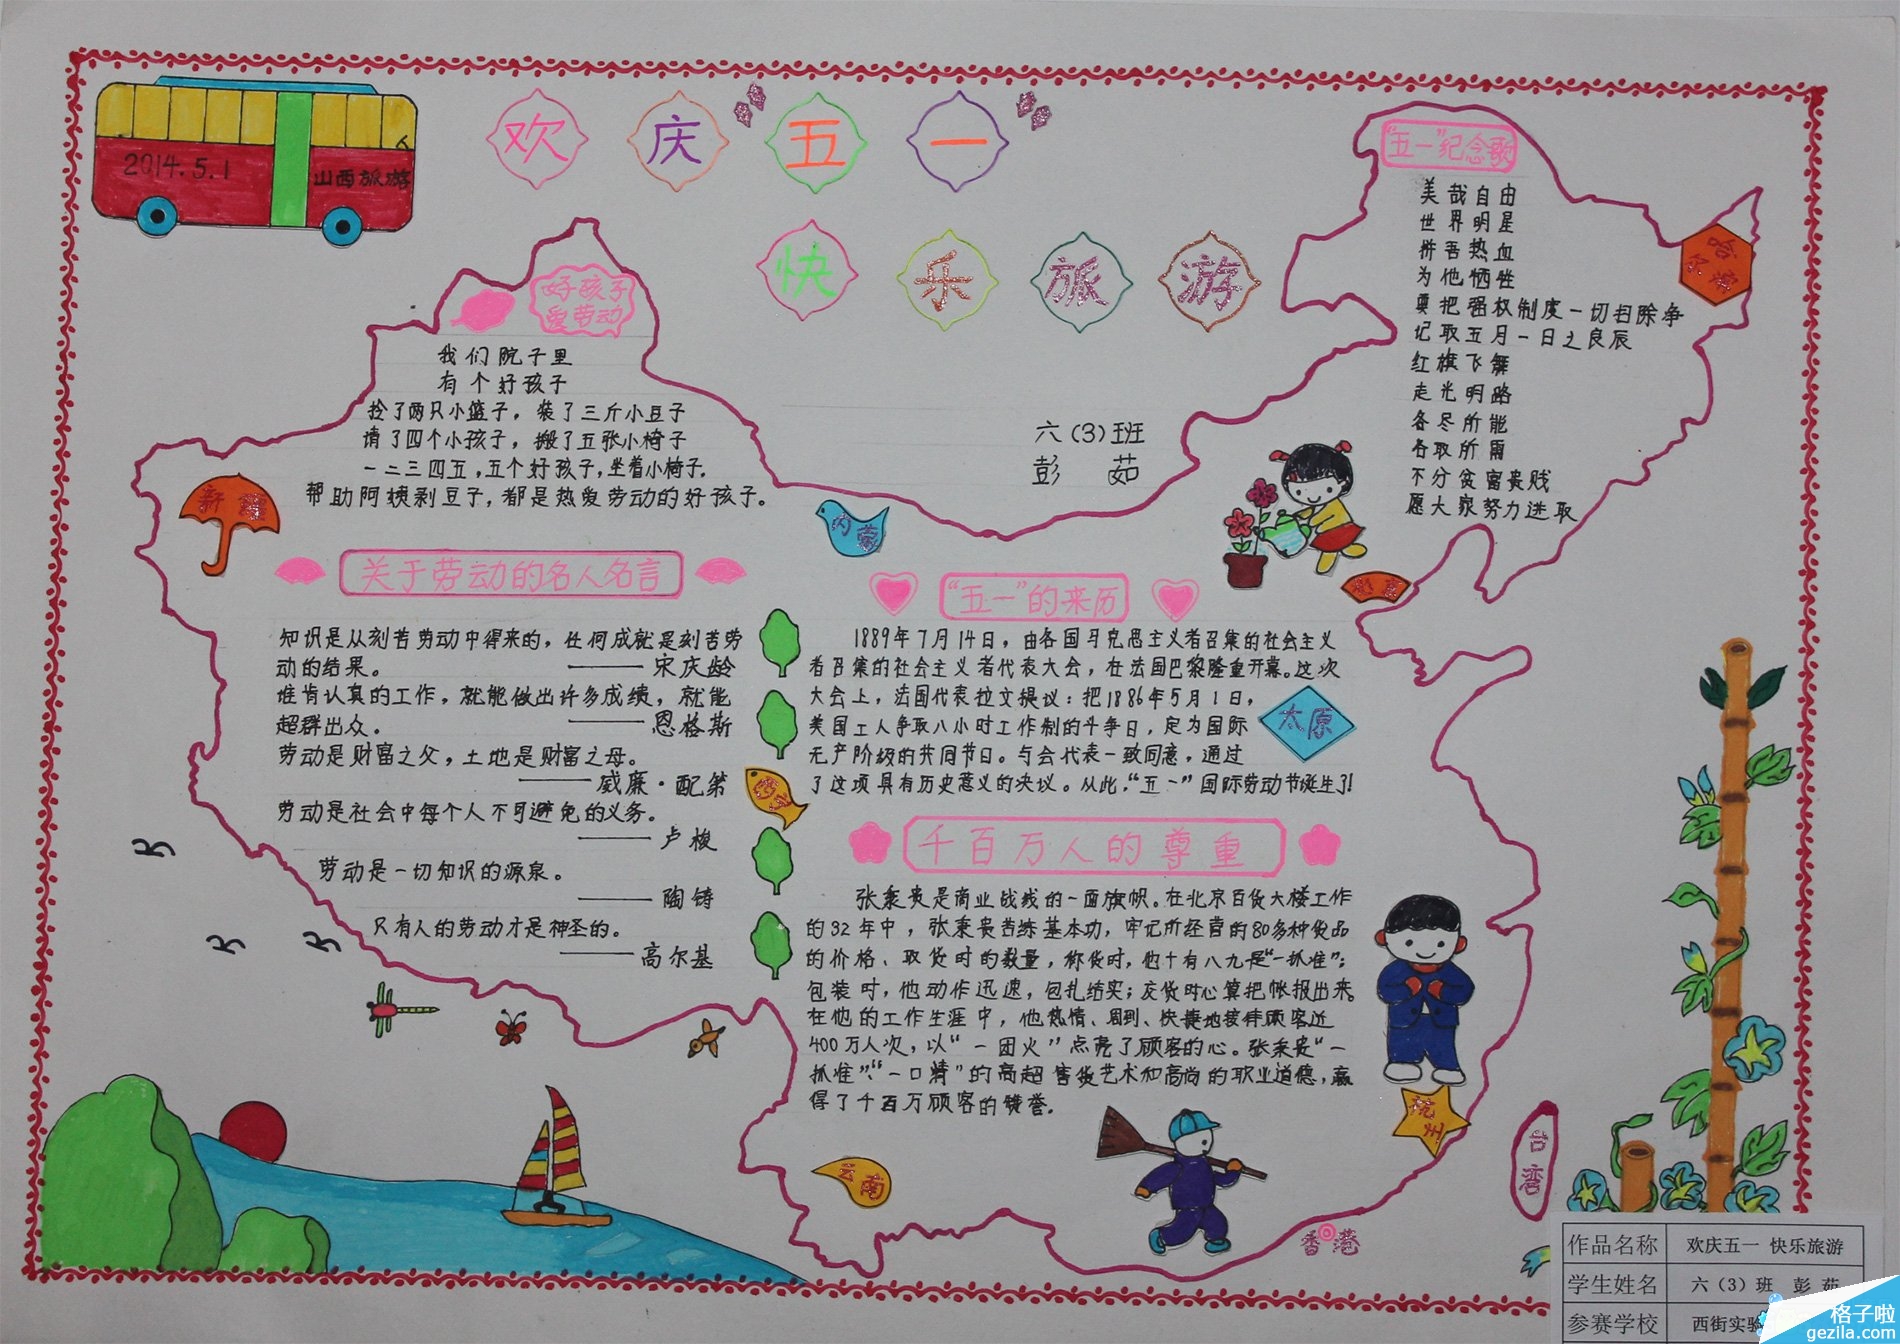 2014.5.1
山西旅游
欢庆五一
快乐旅游
六(3)班
彭 茹
好孩子
爱劳动
我们院子里
有个好孩子
捡了两只小篮子，装了三斤小豆子
请了四个小孩子，搬了五张小椅子
一二三四五，五个好孩子，坐着小椅子.
帮助阿姨剥豆子，都是热爱劳动的好孩子。
新疆
内蒙
关于劳动的名人名言
知识是从刻苦劳动中得来的，任何成就是刻苦劳
动的结果。
——宋庆龄
谁肯认真的工作，就能做出许多成绩，就能
超群出众.
——恩格斯
劳动是财富之父，土地是财富之母。
——威廉·配第
劳动是社会中每个人不可避免的义务。
——卢梭
劳动是一切知识的源泉。
——陶铸
只有人的劳动才是神圣的。
——高尔基
“五一”纪念歌
美哉自由
世界明星
拼吾热血
为他牺牲
要把强权制度一切扫除净
记取五月一日之良辰
红旗飞舞
走光明路
各尽所能
各取所需
不分贫富贵贱
愿大家努力进取
哈尔滨
“五一”的来历
1889年7月14日，由各国马克思主义者召集的社会主义
者召集的社会主义者代表大会，在法国巴黎隆重开幕。这次
大会上，法国代表拉文提议：把1886年5月1日，
美国工人争取八小时工作制的斗争日，定为国际
无产阶级的共同节日。与会代表一致同意，通过
了这项具有历史意义的决议。从此，“五一”国际劳动节诞生了!
太原
千百万人的尊重
张秉贵是商业战线的一面旗帜。在北京百货大楼工作
的32年中，张秉贵苦练基本功，牢记所经营的80多种货品
的价格、取货时的数量，称货时，他十有八九是“一抓准”；
包装时，他动作迅速，包扎结实；交货时心算把帐报出来。
在他的工作生涯中，他热情、周到、快捷地接待顾客近
400万人次，以“一团火”点亮了顾客的心。张秉贵“一
抓准”、“一口精”的高超售货艺术和高尚的职业道德，赢
得了千百万顾客的赞誉.
云南
台湾
香港
作品名称 欢庆五一 快乐旅游
学生姓名 六（3）班 彭 茹
参赛学校 西街实验
格子啦
gezila.com